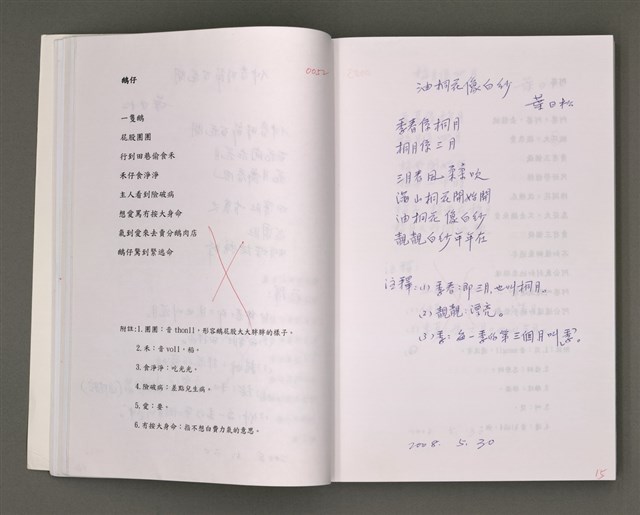 0052
鵝仔
一隻鵝
屁股團團
行到田巷偷食禾
禾仔食淨淨
主人看到險破病
想愛罵冇按大身命
氣到愛來去賣分鵝肉店
鵝仔驚到緊逃命
附註:1.團團:音thonll,形容鵝屁股大大胖胖的樣子。
2.禾:音voll,稻。
3.食淨淨:吃光光。
4.險破病:差點兒生病。
5.愛:要。
6.冇按大身命:指不想白費力氣的意思。
油桐花像白紗
葉日松
季春係桐月
桐月係三月
三月春風柔柔吹
滿山桐花開始開
油桐花像白紗
靚靚白紗年年在
注釋:(1) 季春:即三月,也叫桐月。
(2) 靚靚:漂亮。
(3) 季:每一季的第三個月叫季。
2008. 5. 30
15